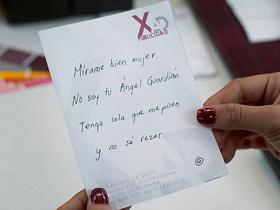 XAD
PUBLICIDAD
Mírame bien mujer
No soy tu Ángel Guardián
Tengo cola que me pisen
y no sé rezar.
G